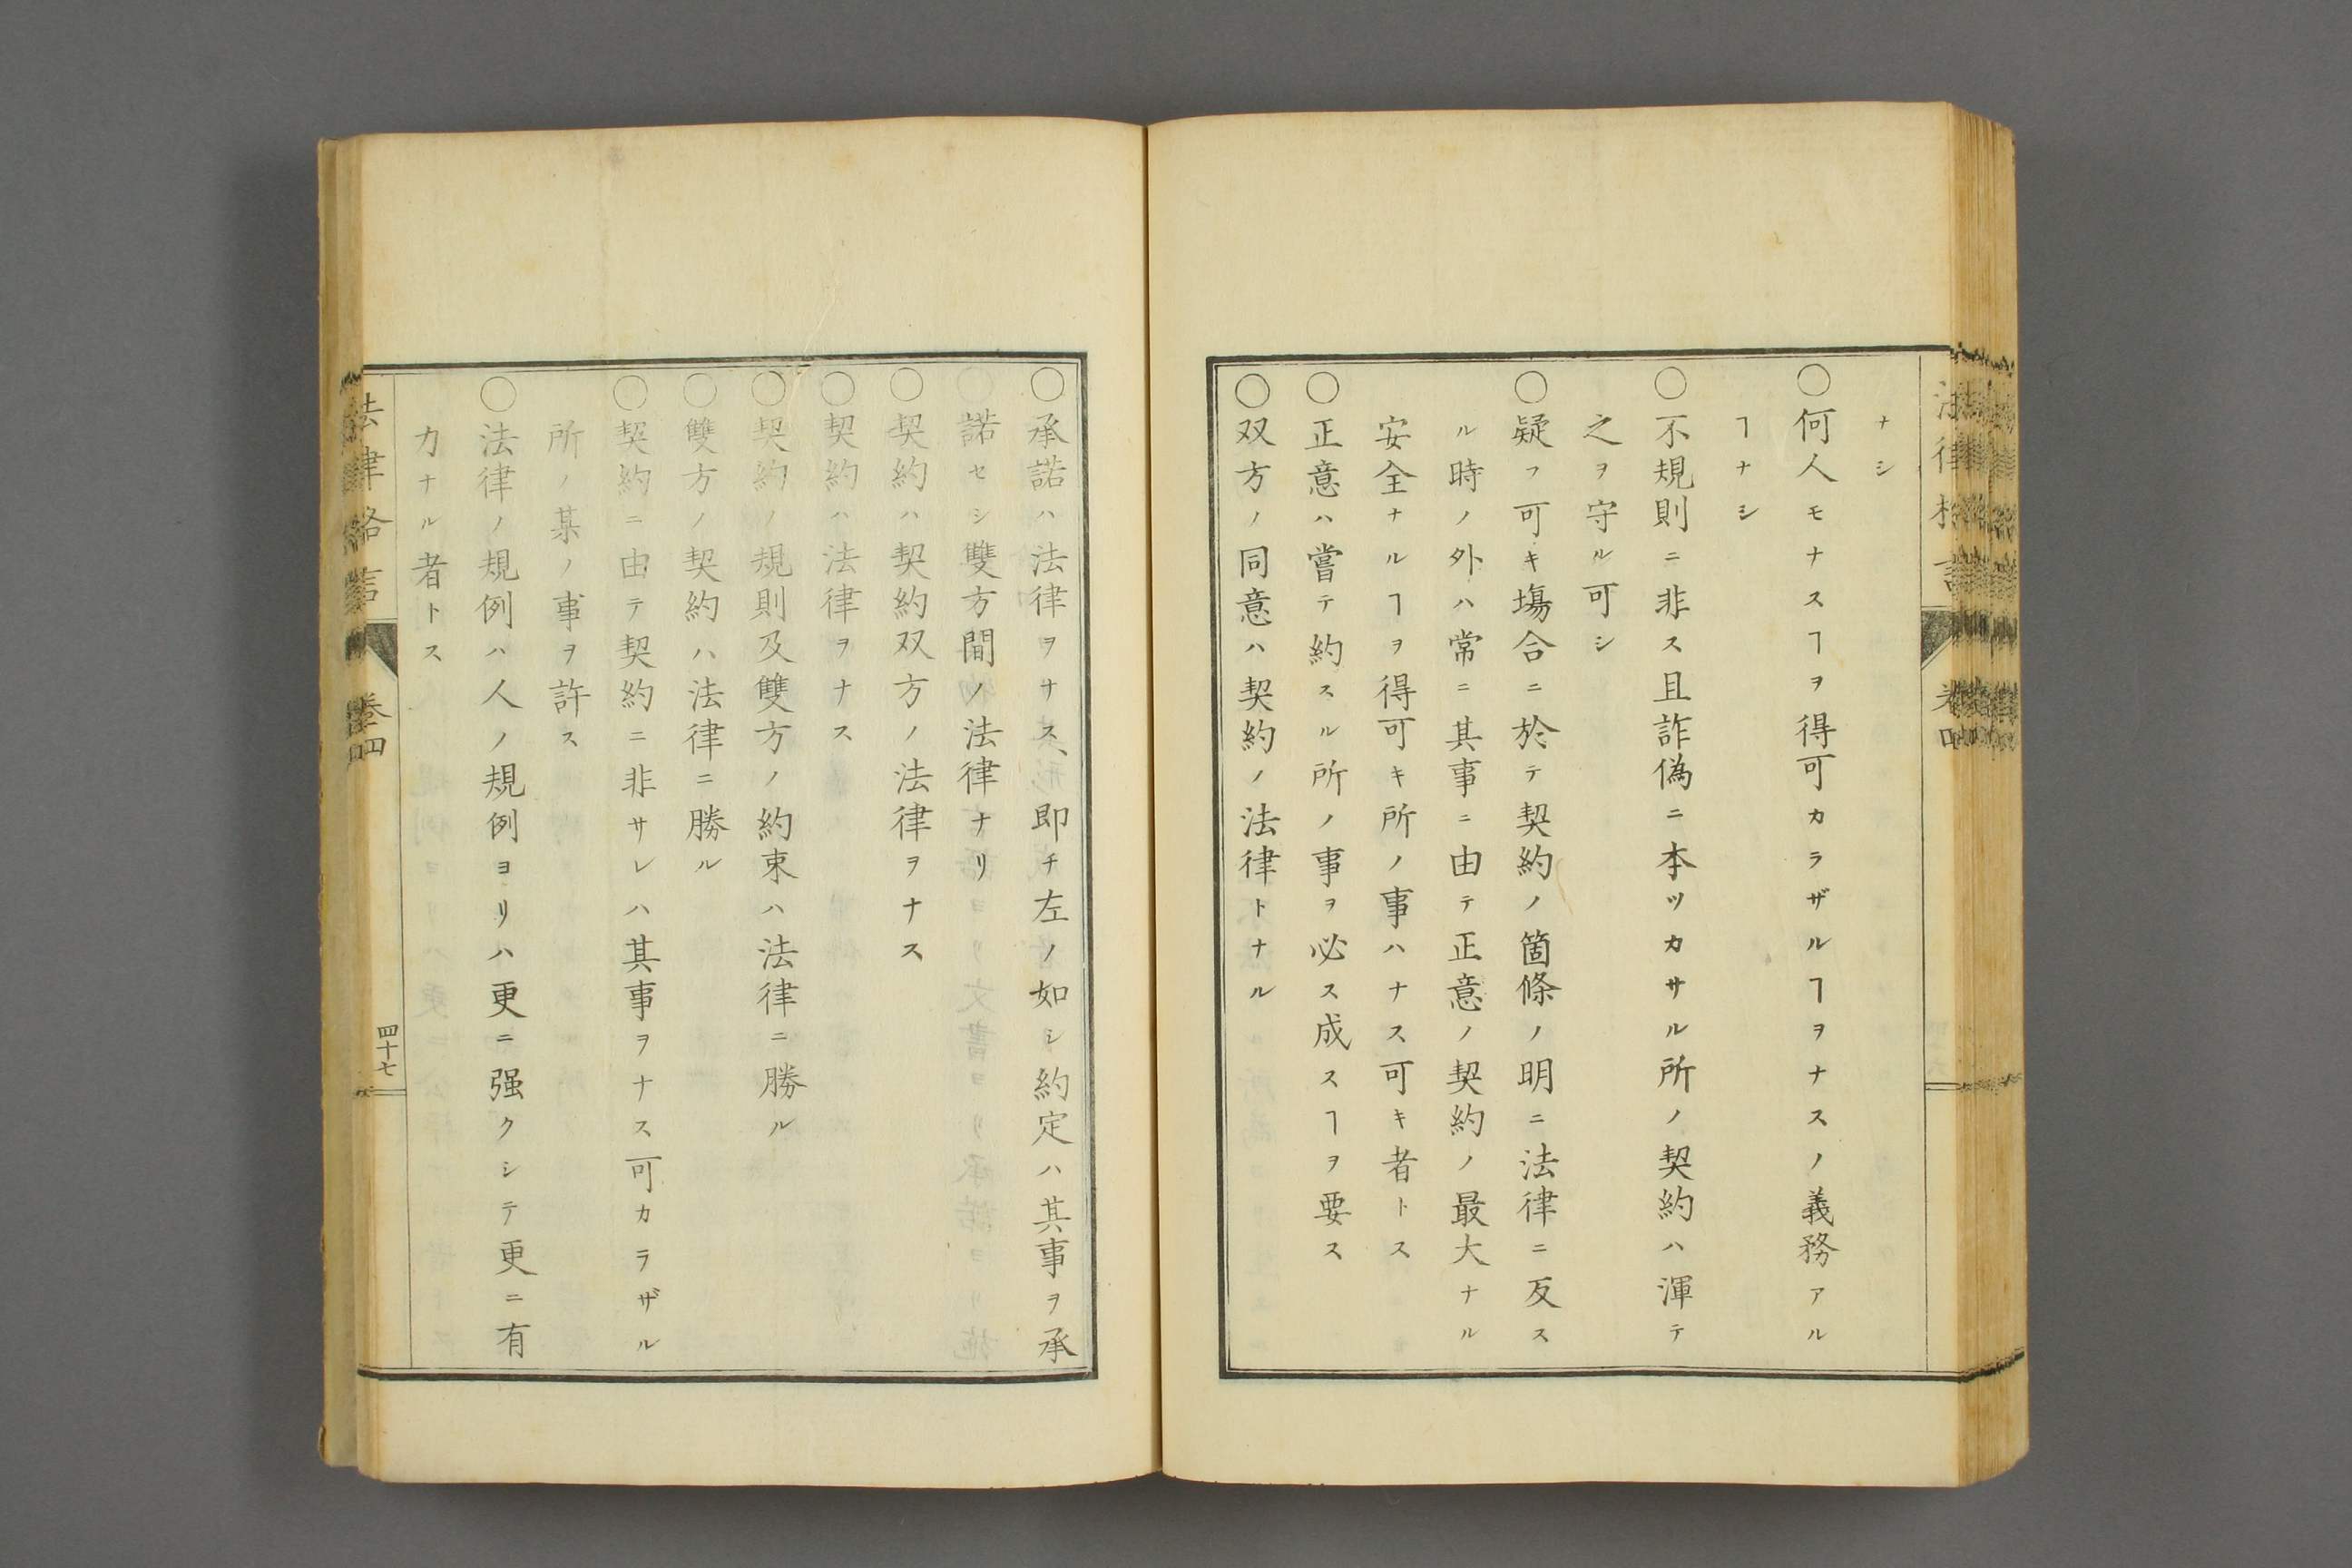 ナシ
○何人モナスヿヲ得可カラザルヿヲナスノ義務アル
ヿナシ
○不規則ニ非ス且詐偽ニ本ツカサル所ノ契約ハ渾テ
之ヲ守ル可シ
○疑フ可キ塲合ニ於テ契約ノ箇條ノ明ニ法律ニ反ス
ル時ノ外ハ常ニ其事ニ由テ正意ノ契約ノ最大ナル
安全ナルヿヲ得可キ所ノ事ハナス可キ者トス
○正意ハ嘗テ約スル所ノ事ヲ必ス成スヿヲ要ス
○双方ノ同意ハ契約ノ法律トナル
○承諾ハ法律ヲナス、即チ左ノ如シ約定ハ其事ヲ承
諾セシ雙方間ノ法律ナリ
○契約ハ契約双方ノ法律ヲナス
○契約ハ法律ヲナス
○契約ノ規則及雙方ノ約束ハ法律ニ勝ル
○雙方ノ契約ハ法律ニ勝ル
○契約ニ由テ契約ニ非サレハ其事ヲナス可カラザル
所ノ某ノ事ヲ許ス
○法律ノ規例ハ人ノ規例ヨリハ更ニ强クシテ更ニ有
力ナル者トス
法律格言 卷四 四十七